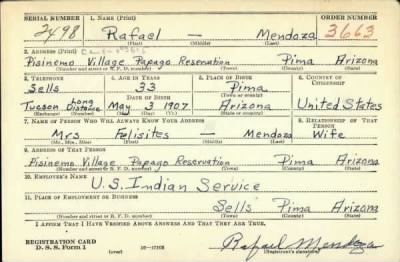 SERIAL NUMBER 1. NAME (Print) ORDER NUMBER
2498 Rafael — Mendoza 3663
(First) (Middle) (Last)
2. ADDRESS (Print)
Pisinemo Village Papago Reservation Pima Arizona
(Number and street or R. F. D. number) (Town) (County) (State)
3. TELEPHONE 4. AGE IN YEARS 5. PLACE OF BIRTH 6. COUNTRY OF CITIZENSHIP
Sells 33 Pima
DATE OF BIRTH (Town or county)
Tucson Long Distance May 3 1907 Arizona United States
(Exchange) (Number) (Mo.) (Day) (Yr.) (State or country)
7. NAME OF PERSON WHO WILL ALWAYS KNOW YOUR ADDRESS 8. RELATIONSHIP OF THAT PERSON
Mrs Felisites — Mendoza Wife
(Mr., Mrs., Miss) (First) (Middle) (Last)
9. ADDRESS OF THAT PERSON
Pisinemo Village Papago Reservation Pima Arizona
(Number and street or R. F. D. number) (Town) (County) (State)
10. EMPLOYER'S NAME
U.S. Indian Service
11. PLACE OF EMPLOYMENT OR BUSINESS
Sells Pima Arizona
(Number and street or R. F. D. number) (Town) (County) (State)
I AFFIRM THAT I HAVE VERIFIED ABOVE ANSWERS AND THAT THEY ARE TRUE.
REGISTRATION CARD
D. S. S. Form 1 (over) Rafael Mendoza
(Registrant's signature)